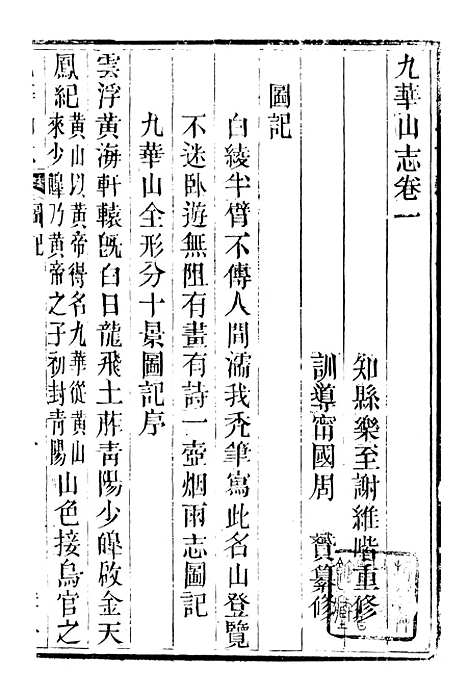 九華山志卷一
知縣樂至謝維喈重修
訓導甯國周　贇纂修
圖記
白綾半臂不傳人間濡我禿筆寫此名山登覽
不迷臥遊無阻有畫有詩一壺烟雨志圖記
九華山全形分十景圖記序
雲浮黃海軒轅旣白日龍飛土胙靑陽少皥啟金天
鳳紀黃山以黃帝得名九華從黃山
來少皥乃黃帝之子初封靑陽山色接鳥官之
圖記